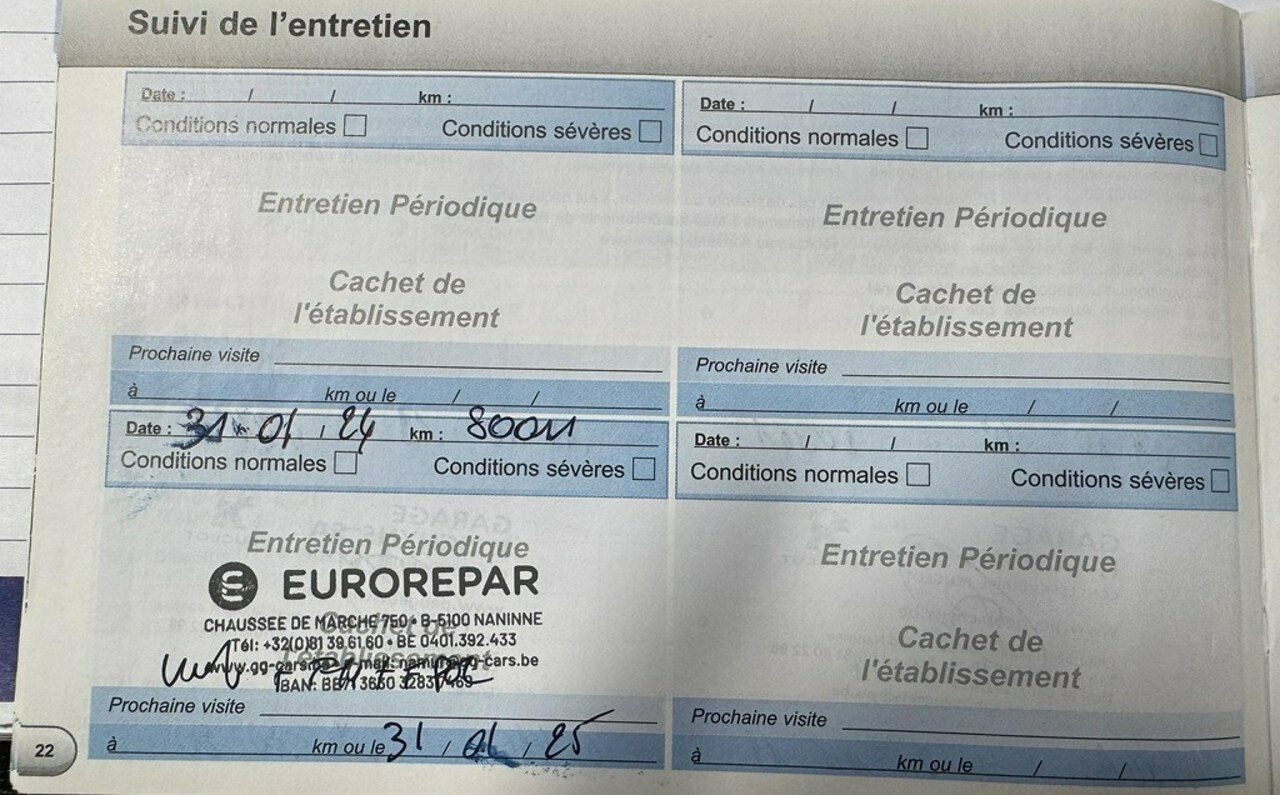 Suivi de l'entretien
Date : / / km :
Conditions normales Conditions sévères
Entretien Périodique
Cachet de
l'établissement
Prochaine visite
à km ou le / /
Date : 31 / 01 / 24 km :
Conditions normales Conditions sévères
Entretien Périodique
EUROREPAR
CHAUSSEE DE MARCHE 750 • B-5100 NANINNE
Cachet de
Tél: +32(0)81 39 61 60 • BE 0401.392.433
l'établissement
www.gg-cars.be
Prochaine visite
à km ou le 31 / 01 / 25
22
Date : / / km :
Conditions normales Conditions sévères
Entretien Périodique
Cachet de
l'établissement
Prochaine visite
à km ou le / /
Date : / / km :
Conditions normales Conditions sévères
Entretien Périodique
Cachet de
l'établissement
Prochaine visite
à km ou le / /